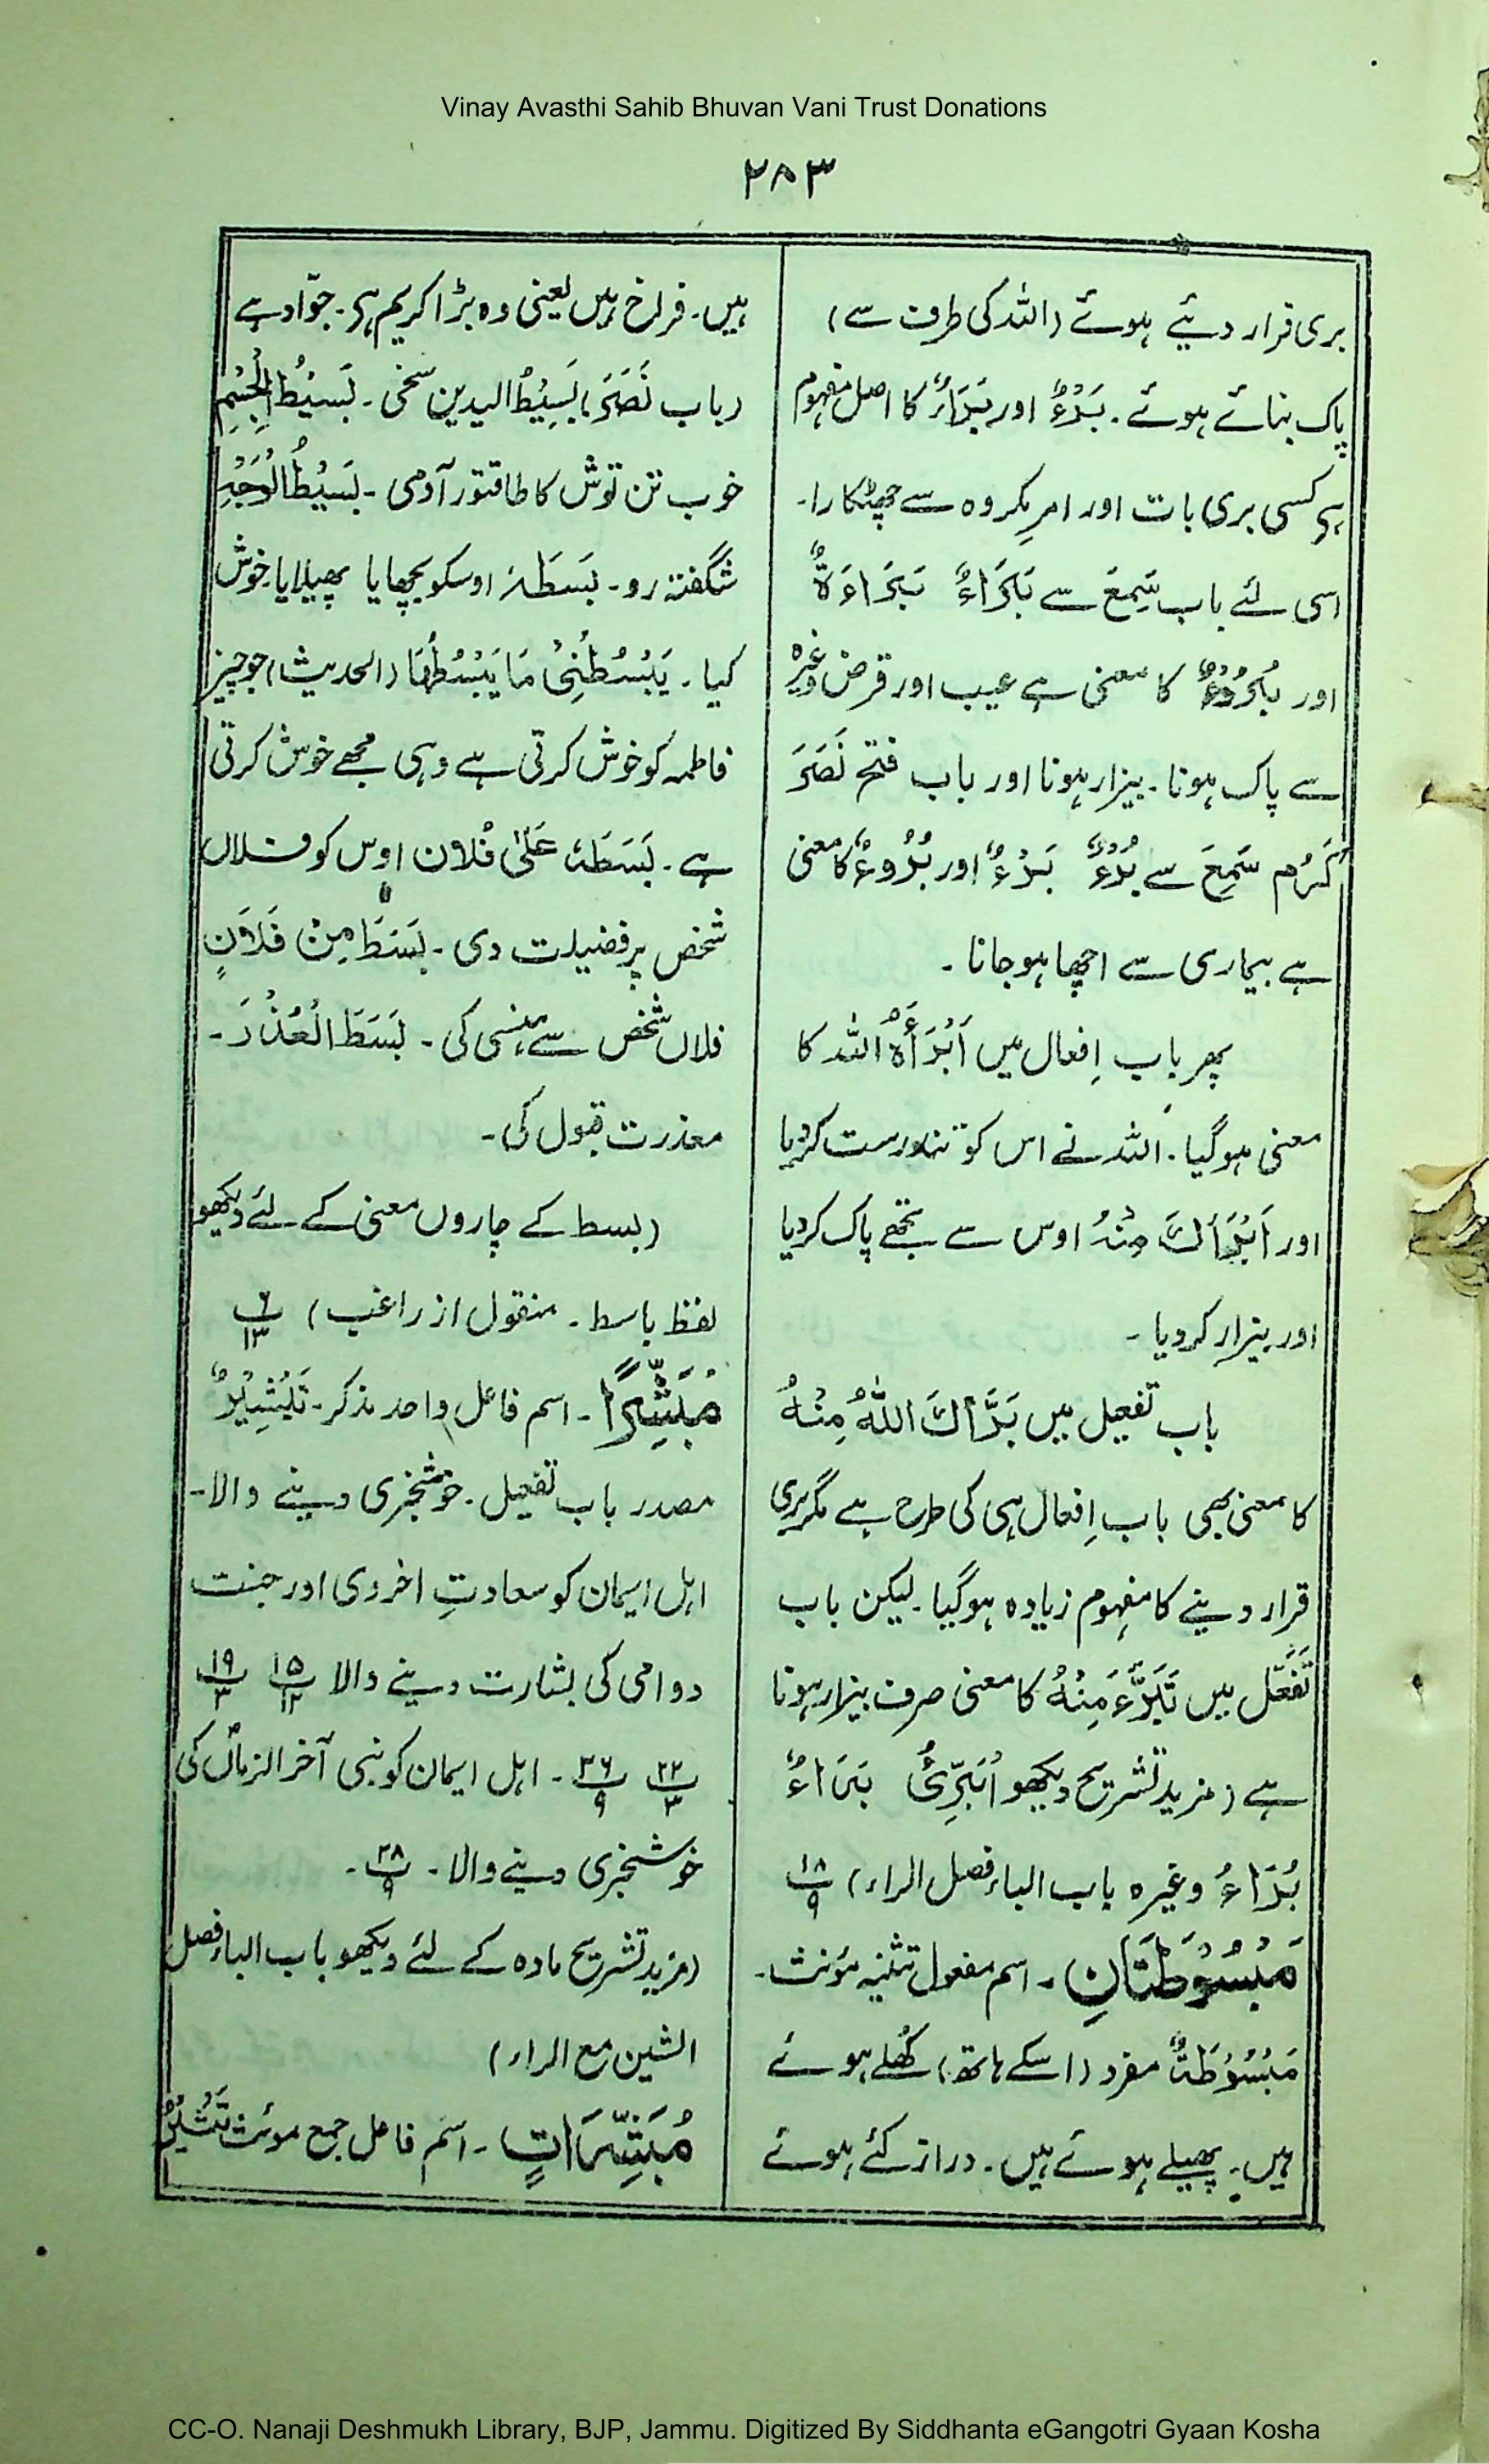 Vinay Avasthi Sahib Bhuvan Vani Trust Donations
۲۸۳
بری قرار دیئے ہوئے (اللہ کی طرف سے)
پاک بنائے ہوئے۔ بَرْءٌ اور بَرَاءٌ کا اصل مفہوم
ہر کسی بری بات اور امرِ مکروہ سے چھٹکارا۔
اسی لئے باب سَمِعَ سے بَرَاءٌ بَرَاءَةٌ
اور بُرُوْءٌ کا معنی ہے عیب اور قرض وغیرہ
سے پاک ہونا۔ بیزار ہونا اور باب فتح نَصَرَ
کَرُم سَمِعَ سے بُرْءٌ بَرْءٌ اور بُرُوءٌ کا معنی
ہے بیماری سے اچھا ہو جانا۔
پھر باب اِفعال میں اَبْرَأَہُ اللہ کا
معنی ہوگیا۔ اللہ نے اس کو تندرست کردیا
اور اَبْرَأَكَ مِنْہُ اوس سے تجھے پاک کردیا
اور بیزار کردیا۔
باب تفعیل میں بَرَّأَكَ اللّٰہُ مِنْہُ
کا معنی بھی باب اِفعال ہی کی طرح ہے مگر بری
قرار دینے کا مفہوم زیادہ ہوگیا۔ لیکن باب
تَفَعُّل میں تَبَرَّءَ مِنْہُ کا معنی صرف بیزار ہونا
ہے (مزید تشریح دیکھو اُبَرِّئُ بَرَاءٌ
بُرَاءُ وغیرہ باب الباء فصل الراء) ۱۸/۹
مَبْسُوْطَتَانِ۔ اسم مفعول تثنیہ مؤنث۔
مَبْسُوْطَةٌ مفرد (اسکے ہاتھ) کُھلے ہوئے
ہیں۔ پھیلے ہوئے ہیں۔ دراز کئے ہوئے
ہیں۔ فراخ ہیں یعنی وہ بڑا کریم ہی۔ جوّاد ہے
(باب نَصَرَ) بَسِیْطُ الیدین سخی۔ بَسِیْطُ الْجِسْمِ
خوب تن توش کا طاقتور آدمی۔ بَسِیْطُ الْوَجْہِ
شگفتہ رو۔ بَسَطَہٗ اوسکو بچھایا پھیلایا خوش
کیا۔ یَبْسُطُنِیْ مَا یَبْسُطُہَا (الحدیث) جو چیز
فاطمہ کو خوش کرتی ہے وہی مجھے خوش کرتی
ہے۔ بَسَطَہٗ عَلیٰ فُلَان اوس کو فلاں
شخص پر فضیلت دی۔ بَسَطَ مِنْ فَلَانٍ
فلاں شخص سے ہنسی کی۔ بَسَطَ الْعُذْرَ۔
معذرت قبول کی۔
(بسط کے چاروں معنی کے لئے دیکھو
لفظ باسط۔ منقول از راغب) ۶/۱۳
مُبَشِّرًا۔ اسم فاعل واحد مذکر۔ تَبْشِیْرٌ
مصدر باب تفعیل۔ خوشخبری دینے والا۔
اہل ایمان کو سعادتِ اخروی اور جنت
دوامی کی بشارت دینے والا ۱۵/۱۲ ۱۹/۳
۲۲/۳ ۲۶/۹۔ اہل ایمان کو نبی آخر الزماںؐ کی
خوشخبری دینے والا۔ ۲۸/۹۔
(مزید تشریح مادہ کے لئے دیکھو باب الباء فصل
الشین مع الراء)
مُبَشِّرَاتٍ۔ اسم فاعل جمع موئث تَبْشِیْرٌ
CC-O. Nanaji Deshmukh Library, BJP, Jammu. Digitized By Siddhanta eGangotri Gyaan Kosha